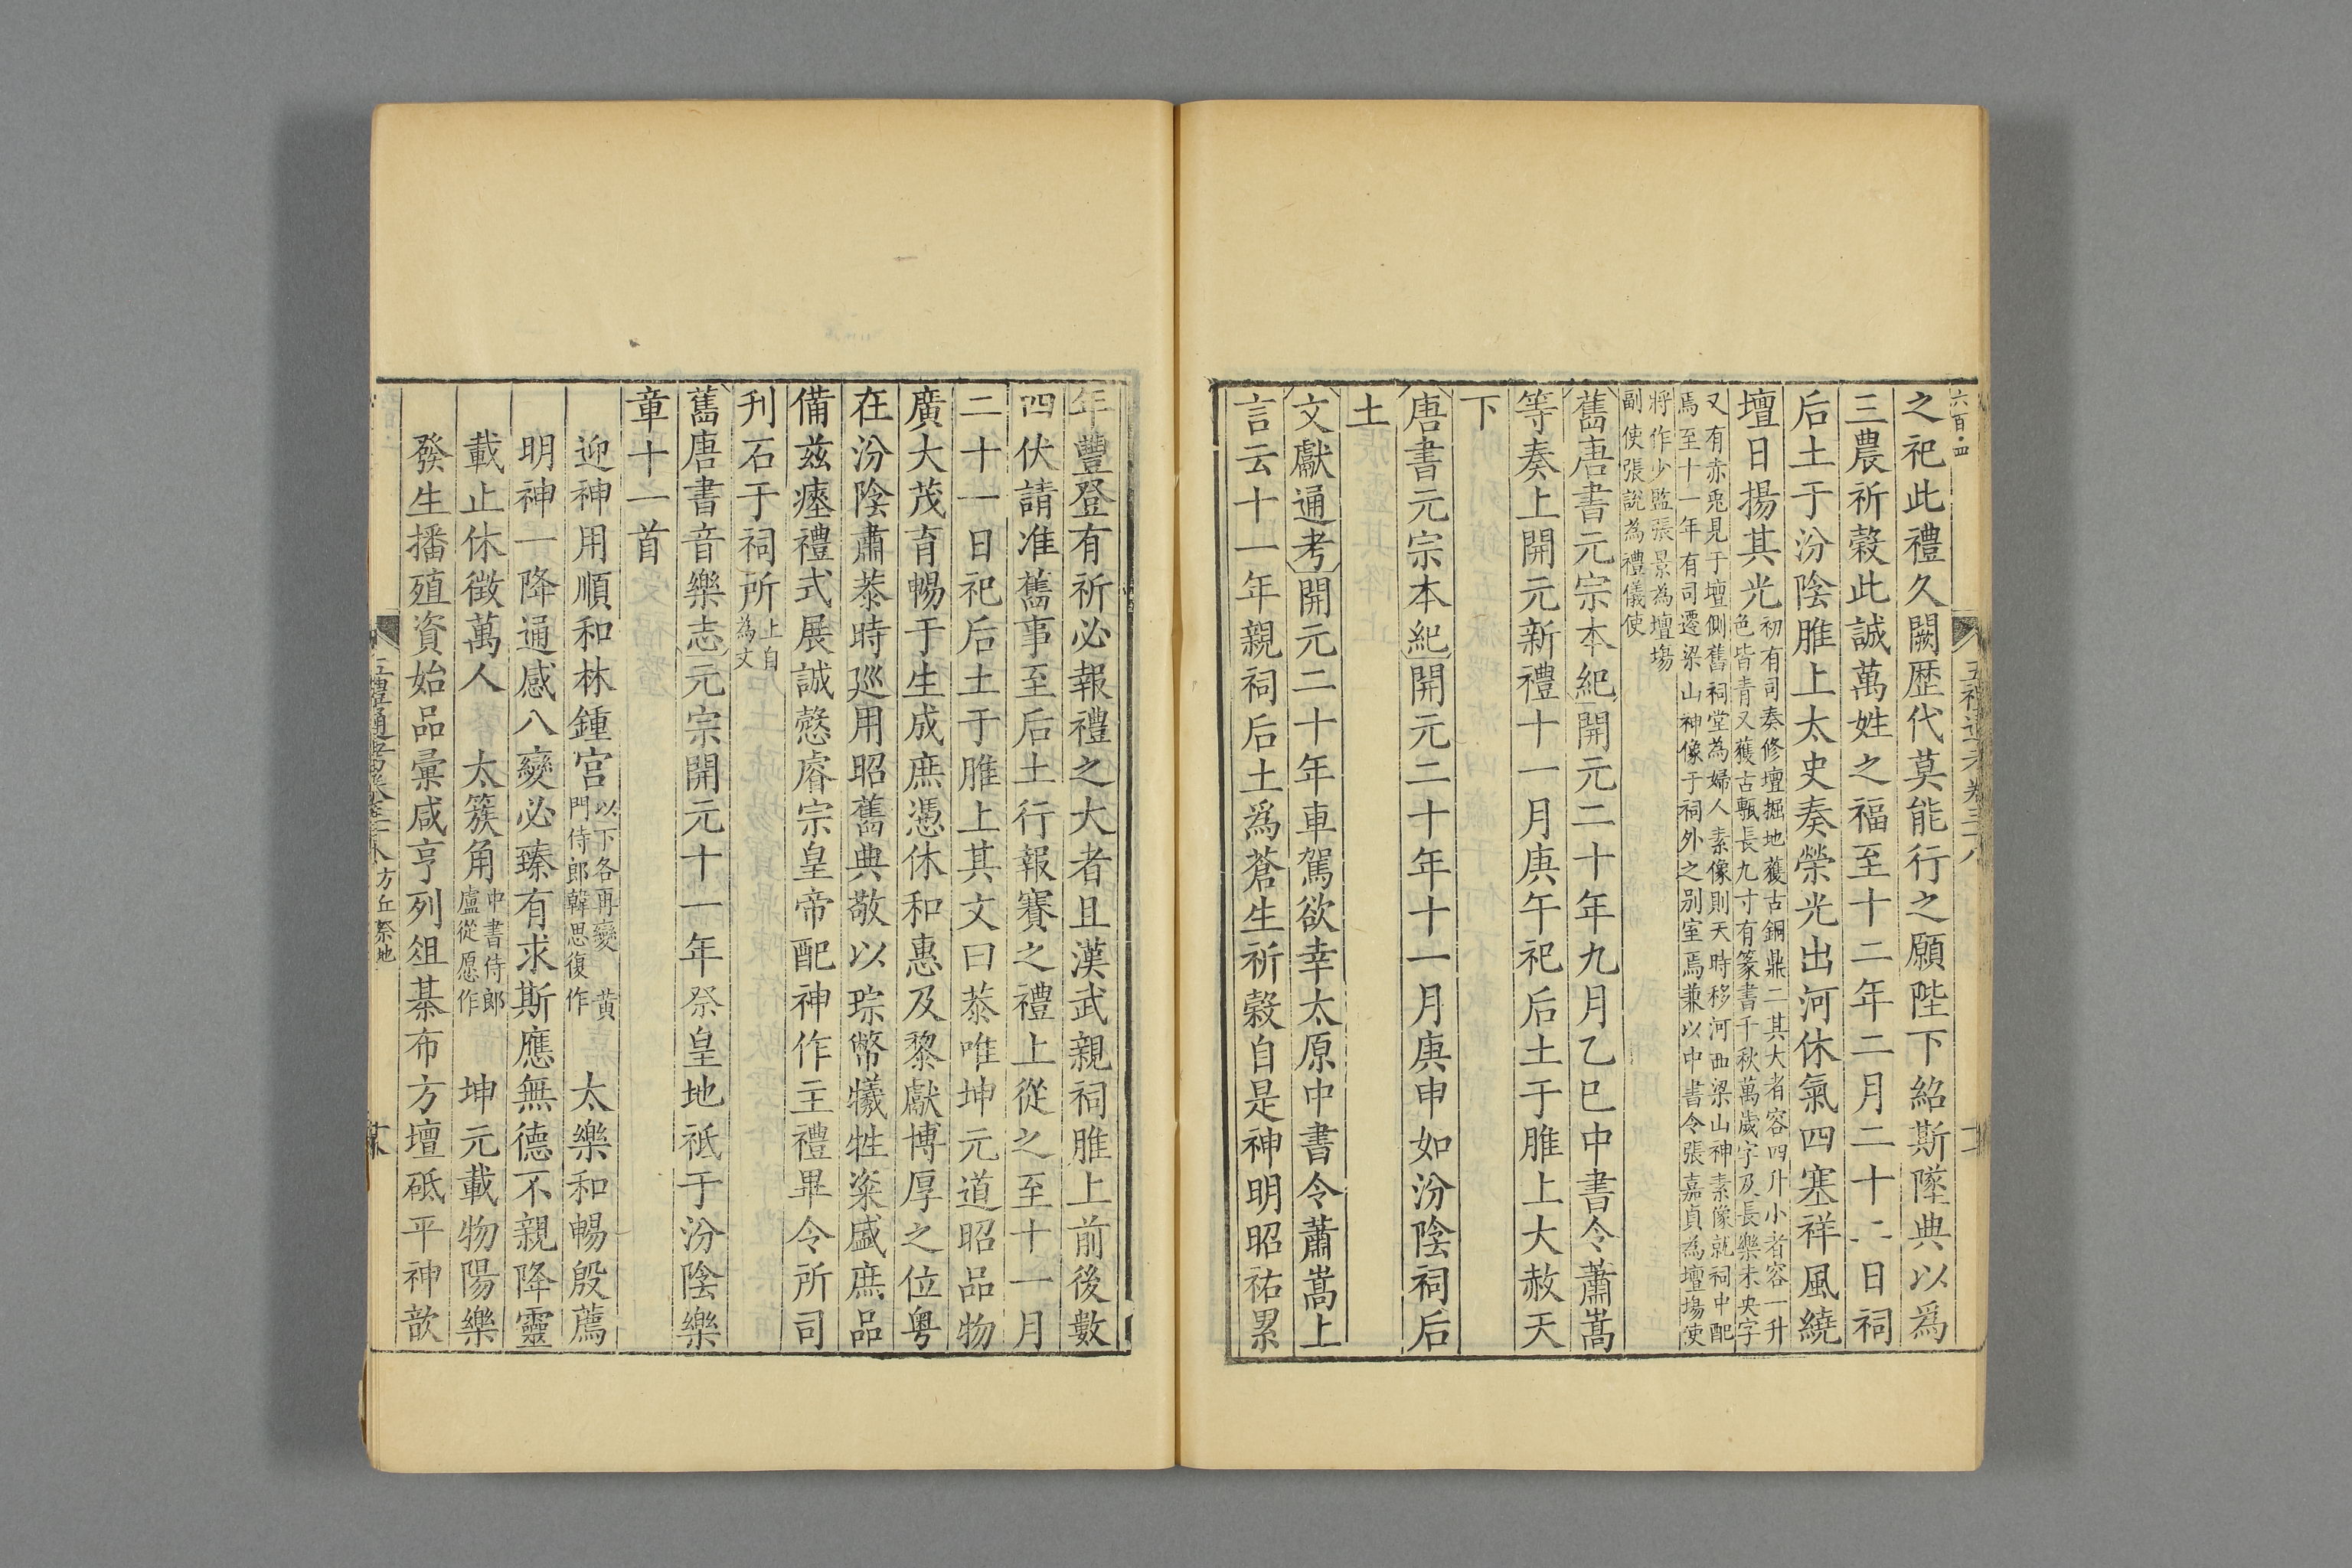 六百四
之祀此禮久闕歴代莫能行之願陛下紹斯墜典以爲
三農祈穀此誠萬姓之福至十二年二月二十二日祠
后土于汾陰脽上太史奏榮光出河休氣四塞祥風繞
壇日揚其光
初有司奏修壇掘地獲古銅鼎二其大者容四升小者容一升
色皆青又獲古甎長九寸有篆書千秋萬歲字及長樂未央字
又有赤兎見于壇側舊祠堂為婦人素像則天時移河西梁山神素像就祠中配
焉至十一年有司遷梁山神像于祠外之别室焉兼以中書令張嘉貞為壇場使
將作少監張景為壇塲
副使張說為禮儀使
舊唐書元宗本紀開元二十年九月乙巳中書令蕭嵩
等奏上開元新禮十一月庚午祀后土于脽上大赦天
下
唐書元宗本紀開元二十年十一月庚申如汾陰祠后
土
文獻通考開元二十年車駕欲幸太原中書令蕭嵩上
言云十一年親祠后土爲蒼生祈穀自是神明昭祐累
年豐登有祈必報禮之大者且漢武親祠脽上前後數
四伏請准舊事至后土行報賽之禮上從之至十一月
二十一日祀后土于脽上其文曰恭唯坤元道昭品物
廣大茂育暢于生成庶憑休和惠及黎獻博厚之位粤
在汾陰肅恭時廵用昭舊典敬以琮幣犧牲粢盛庶品
備兹瘞禮式展誠慤睿宗皇帝配神作主禮畢令所司
刋石于祠所
上自
為文
舊唐書音樂志元宗開元十一年祭皇地祇于汾陰樂
章十一首
迎神用順和林鍾宫
以下各再變 黄
門侍郎韓思復作
太樂和暢殷薦
明神一降通感八變必臻有求斯應無德不親降靈
載止休徴萬人 太簇角
中書侍郎
盧從愿作
坤元載物陽樂
發生播殖資始品彙咸亨列俎棊布方壇砥平神歆
五禮通考卷三十八 方丘祭地